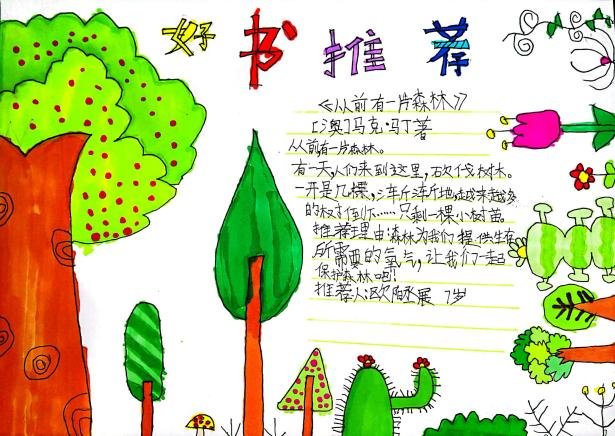 好书推荐
《从前有一片森林》
[澳]马克·马丁著
从前,有一片森林。
有一天,人们来到这里,砍伐树木。
一开是几棵,渐渐地越来越多
的树倒下……只剩一棵小树苗。
推荐理由:森林为我们提供生存
所需要的氧气,让我们一起
保护森林吧!
推荐人:欧阳丞展 7岁